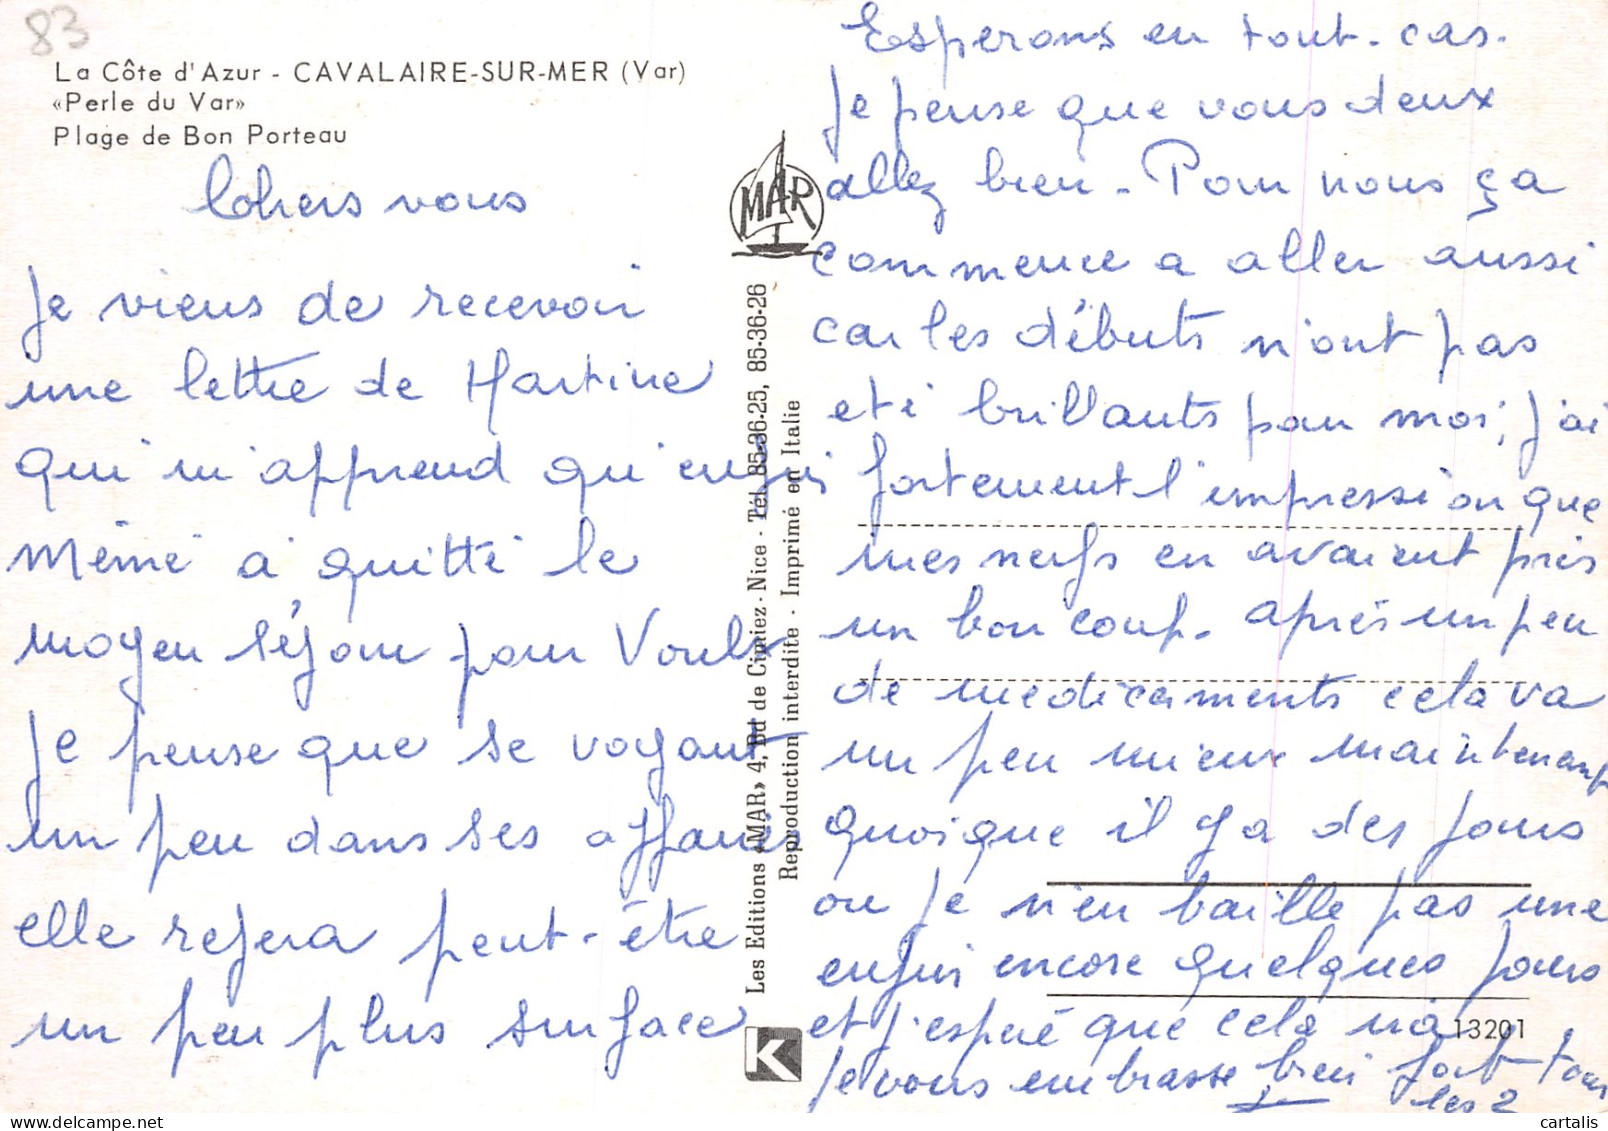 83
La Côte d'Azur - CAVALAIRE-SUR-MER (Var)
«Perle du Var»
Plage de Bon Porteau
Chers vous
Je viens de recevoir
une lettre de Martine
qui m'apprend qu'enfin
Mémé a quitté le
moyen séjour pour Voulx
Je pense que se voyant
un peu dans ses affaires
elle refera peut-être
un peu plus surface
Esperons en tout-cas.
Je pense que vous deux
allez bien. Pour nous ça
commence a aller aussi
car les débuts n'ont pas
eté brillants pour moi, j'ai
fortement l'impression que
mes nerfs en avaient pris
un bon coup. après un peu
de medicaments cela va
un peu mieux maintenant
quoique il y a des jours
ou je n'en baille pas une
enfin encore quelques jours
et j'espère que cela ira
Je vous embrasse bien fort tous
les 2
MAR
Les Editions «MAR» 4, Bd de Cimiez - Nice - Tél. 85-36-25, 85-36-26
Reproduction interdite - Imprimé en Italie
K
13201
© cartalis | delcampe.net